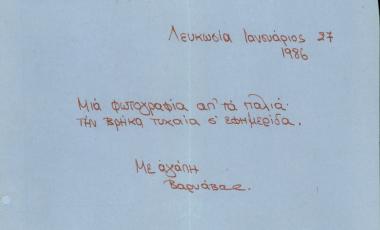 Λευκωσία Ιανουάριος 27
1986
Μιά φωτογραφία απ' τά παλιά·
την βρήκα τυχαία σ' εφημερίδα.
Με αγάπη
Βαρνάβας.